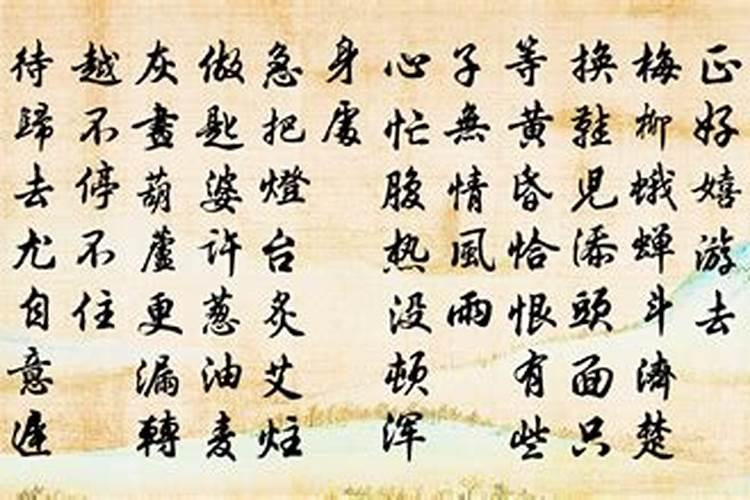 正好嬉游去
梅柳蛾蝉斗濟楚
換鞋兒添頭面只
等黄昏恰恨有些
子無情風雨
心忙腹热没頓渾
身處
急把燈台炙艾炷
做匙婆许葱油麦
灰盡葫蘆更漏轉
越不停不住
待歸去尤自意遲